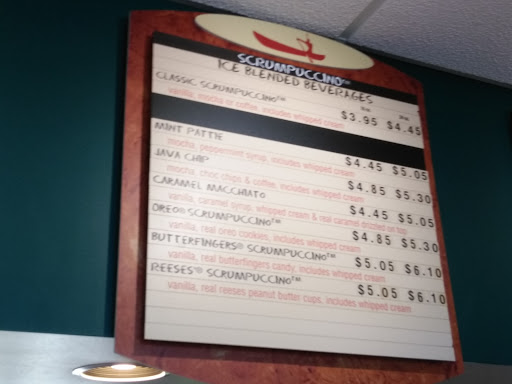 SCRUMPUCCINO™
ICE BLENDED BEVERAGES
CLASSIC SCRUMPUCCINO™ $3.95 $4.45
vanilla, mocha or coffee, includes whipped cream
MINT PATTIE $4.45 $5.05
mocha, peppermint syrup, includes whipped cream
JAVA CHIP $4.85 $5.30
mocha, choc chips & coffee, includes whipped cream
CARAMEL MACCHIATO $4.45 $5.05
vanilla, caramel syrup, whipped cream & real caramel drizzled on top
OREO® SCRUMPUCCINO™ $4.85 $5.30
vanilla, real oreo cookies, includes whipped cream
BUTTERFINGERS® SCRUMPUCCINO™ $5.05 $6.10
vanilla, real butterfingers candy, includes whipped cream
REESES® SCRUMPUCCINO™ $5.05 $6.10
vanilla, real reeses peanut butter cups, includes whipped cream